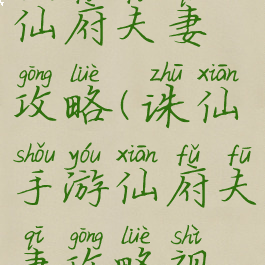 仙府夫妻
gōng lüè zhū xiān
攻略(诛仙
shǒu yóu xiān fǔ fū
手游仙府夫
qī gōng lüè shì
妻攻略视